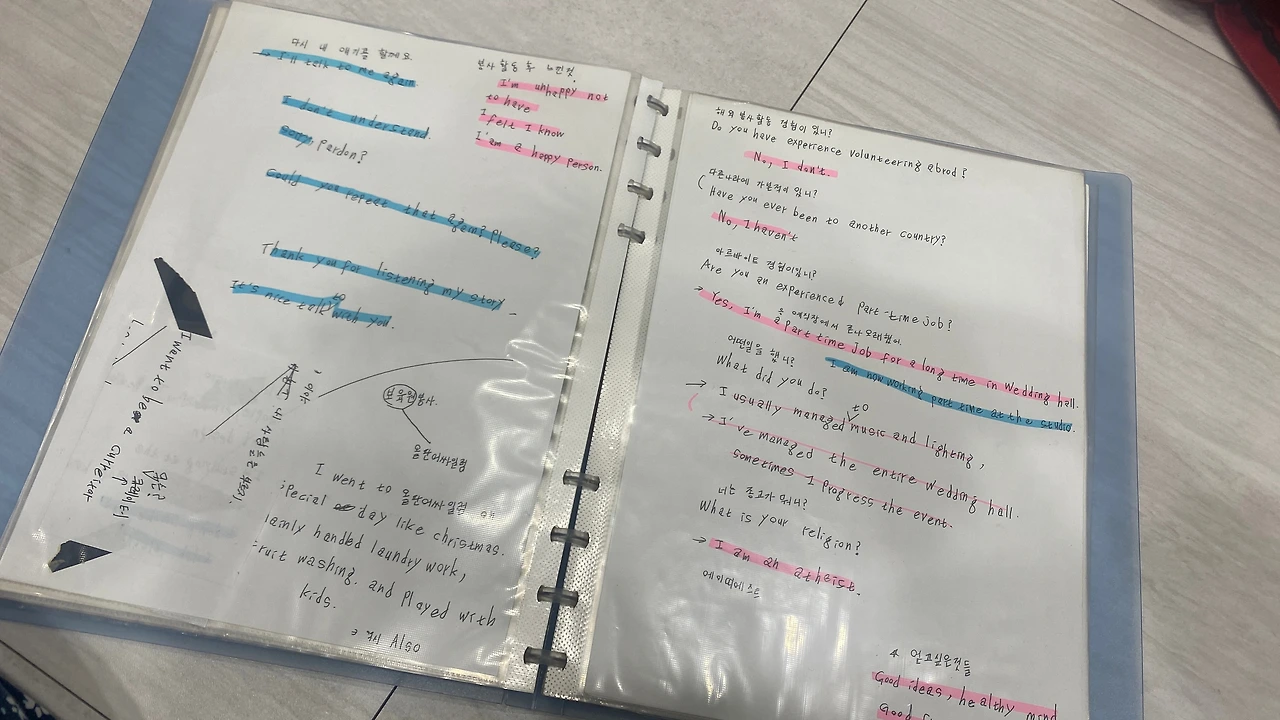 다시 내 얘기를 할께요
→ I'll talk to me again
I don't understand.
Sorry Pardon?
Could you repeat that again? Please?
Thank you for listening my story
to
It's nice talk with you.
봉사 활동 후 느낀것.
I'm unhappy not
to have
I felt I know
I'am a happy person.
I want to be a
보육원봉사.
음판어사일정
I went to 음판어사일정 on
special day like christmas.
mainly handled laundry work,
fruit washing. and Played with
kids.
→ 역시 Also
해외봉사활동 경험이 있니?
Do you have experience volunteering abrod?
No, I don't.
다른나라에 가본적이 있니?
( Have you ever been to another country?
No, I haven't
아르바이트 경험이있니?
Are you an experienced part-time job?
→ Yes, I'm a part time Job for a long time in Wedding hall.
어떤일을 했니?
I am now working part time at the studio.
What did you do?
to
→ I usually managed music and lighting,
→ I've managed the entire wedding hall.
sometimes I progress the event.
너는 종교가 뭐니?
What is your religion?
→ I am an atheist.
에이떼에스트
얻고싶은것들
Good ideas, healthy mind
Good